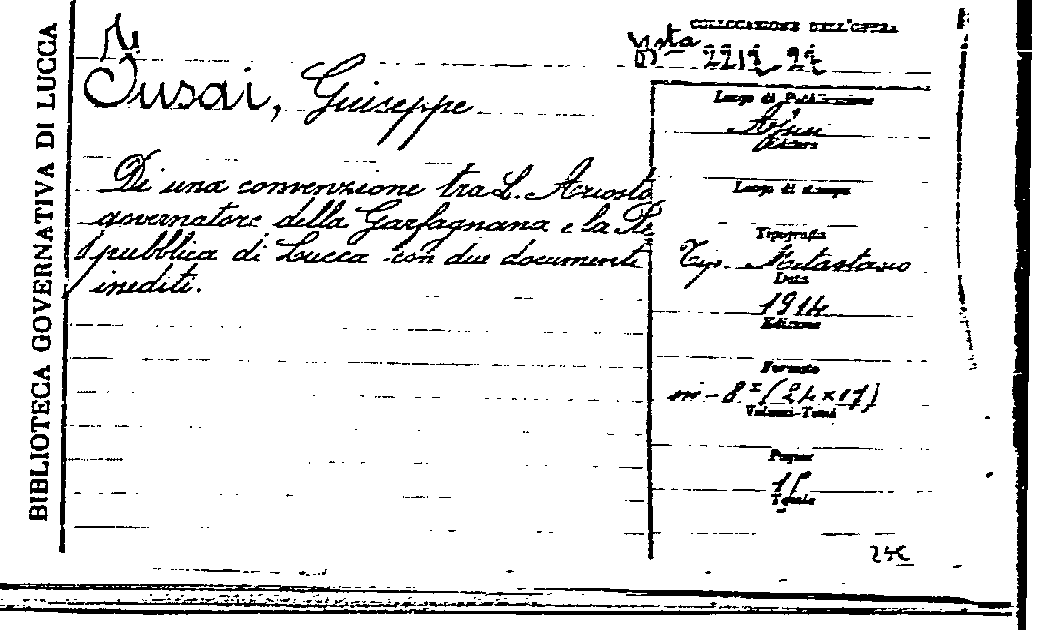 BIBLIOTECA GOVERNATIVA DI LUCCA
Fusai, Giuseppe
Di una convenzione tra L. Ariosto
governatore della Garfagnana e la Re
pubblica di Lucca con due documenti
inediti.
COLLOCAZIONE DELL'OPERA
Busta
Luogo di Pubblicazione
Editore
Luogo di stampa
Tipografia
Tip. Metastasio
Data
1914
Edizione
Formato
in-8º (24×17)
Volumi-Tomi
Pagine
15
Tavole